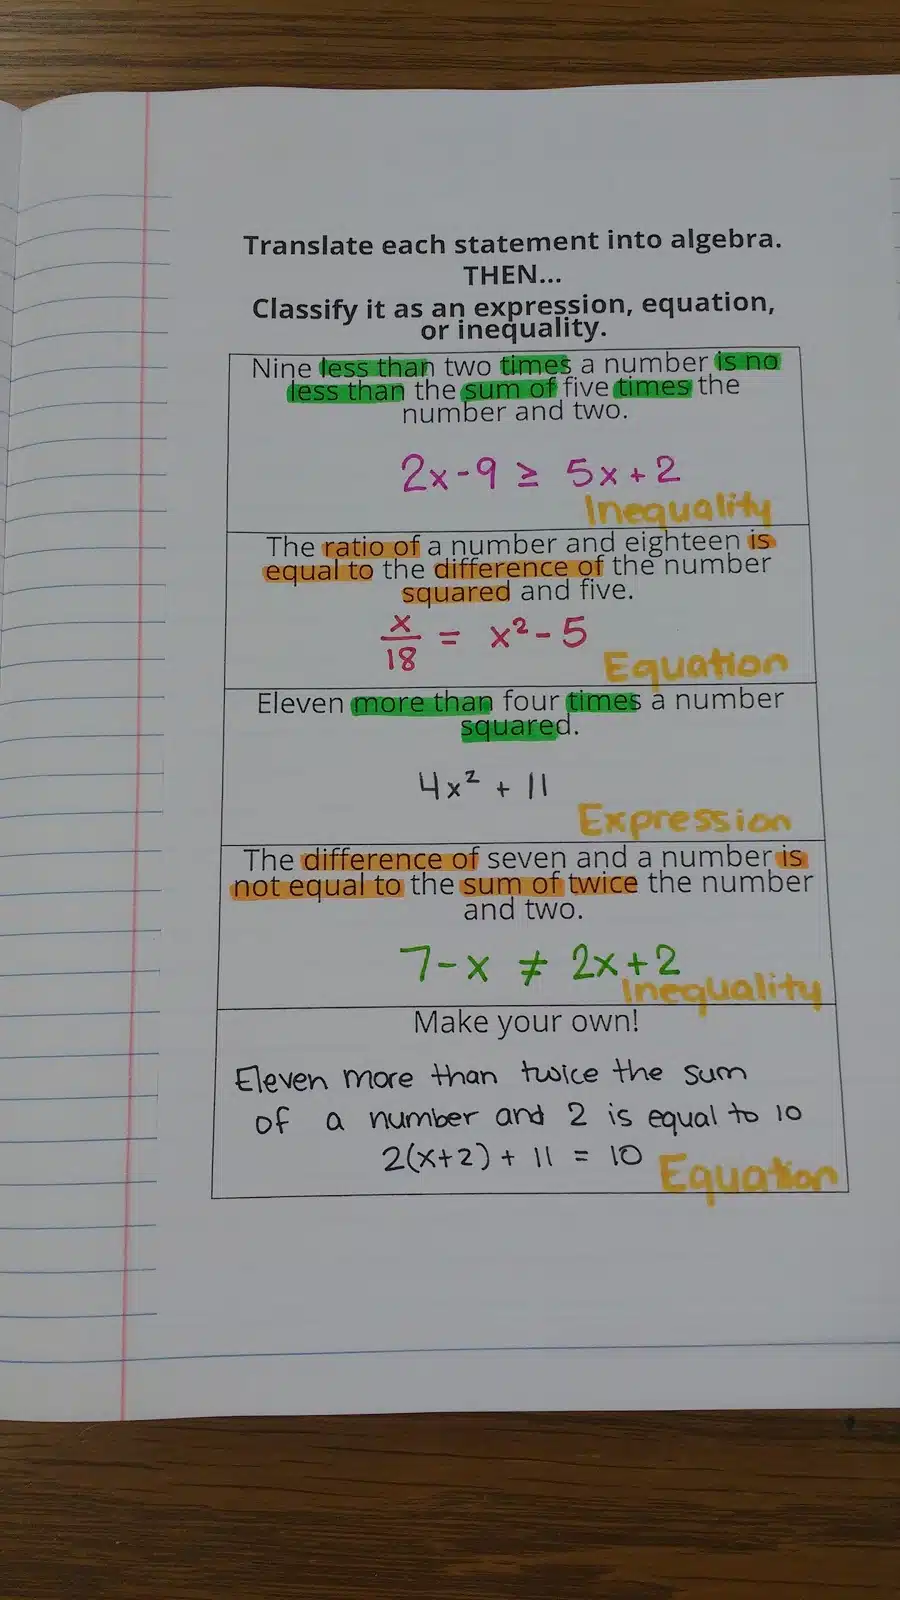 Translate each statement into algebra.
THEN...
Classify it as an expression, equation,
or inequality.
Nine less than two times a number is no
less than the sum of five times the
number and two.
2x-9 ≥ 5x+2
Inequality
The ratio of a number and eighteen is
equal to the difference of the number
squared and five.
x/18 = x²-5
Equation
Eleven more than four times a number
squared.
4x² + 11
Expression
The difference of seven and a number is
not equal to the sum of twice the number
and two.
7-x ≠ 2x+2
Inequality
Make your own!
Eleven more than twice the sum
of a number and 2 is equal to 10
2(x+2) + 11 = 10
Equation